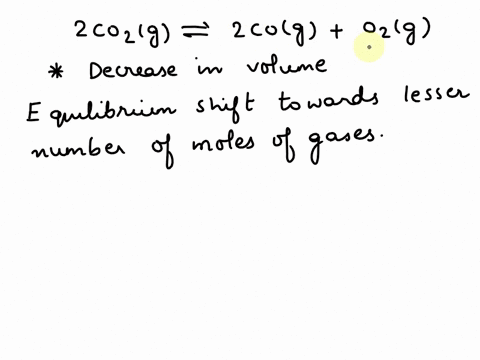 2CO₂(g) ⇌ 2CO(g) + O₂(g)
* Decrease in volume
Equilibrium shift towards lesser
number of moles of gases.